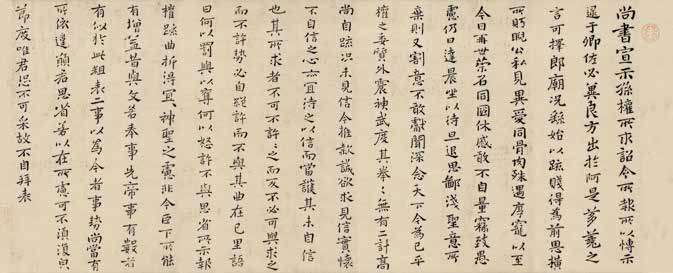 尚書宣示孫權所求詔令所報所以博示
逮于卿佐必冀良方出於阿是芻蕘之
言可擇郎廟況繇始以疏賤得為前恩橫
所盼睨公私見異愛同骨肉殊遇厚寵以至
今日再世榮名同國休慼敢不自量竊致愚
慮仍日達晨坐以待旦退思鄙淺聖意所
棄則又割意不敢獻聞深念天下今為已平
權之委質外震神武度其拳々無有二計高
尚自疏況未見信今推款誠欲求見信實懷
不自信之心亦宜待之以信而當護其未自信
也其所求者不可不許々之而反不必可與求之
而不許勢必自絕許而不與其曲在己里語
曰何以罰與以奪何以怒許不與思省所示報
權疏曲折得宜々神聖之慮非今臣下所能
有增益昔與文若奉事先帝事有數者
有似於此粗表二事以為今者事勢尚當有
所依違願君思省若以在所慮可不須復貌
節度唯君恐不可采故不自拜表